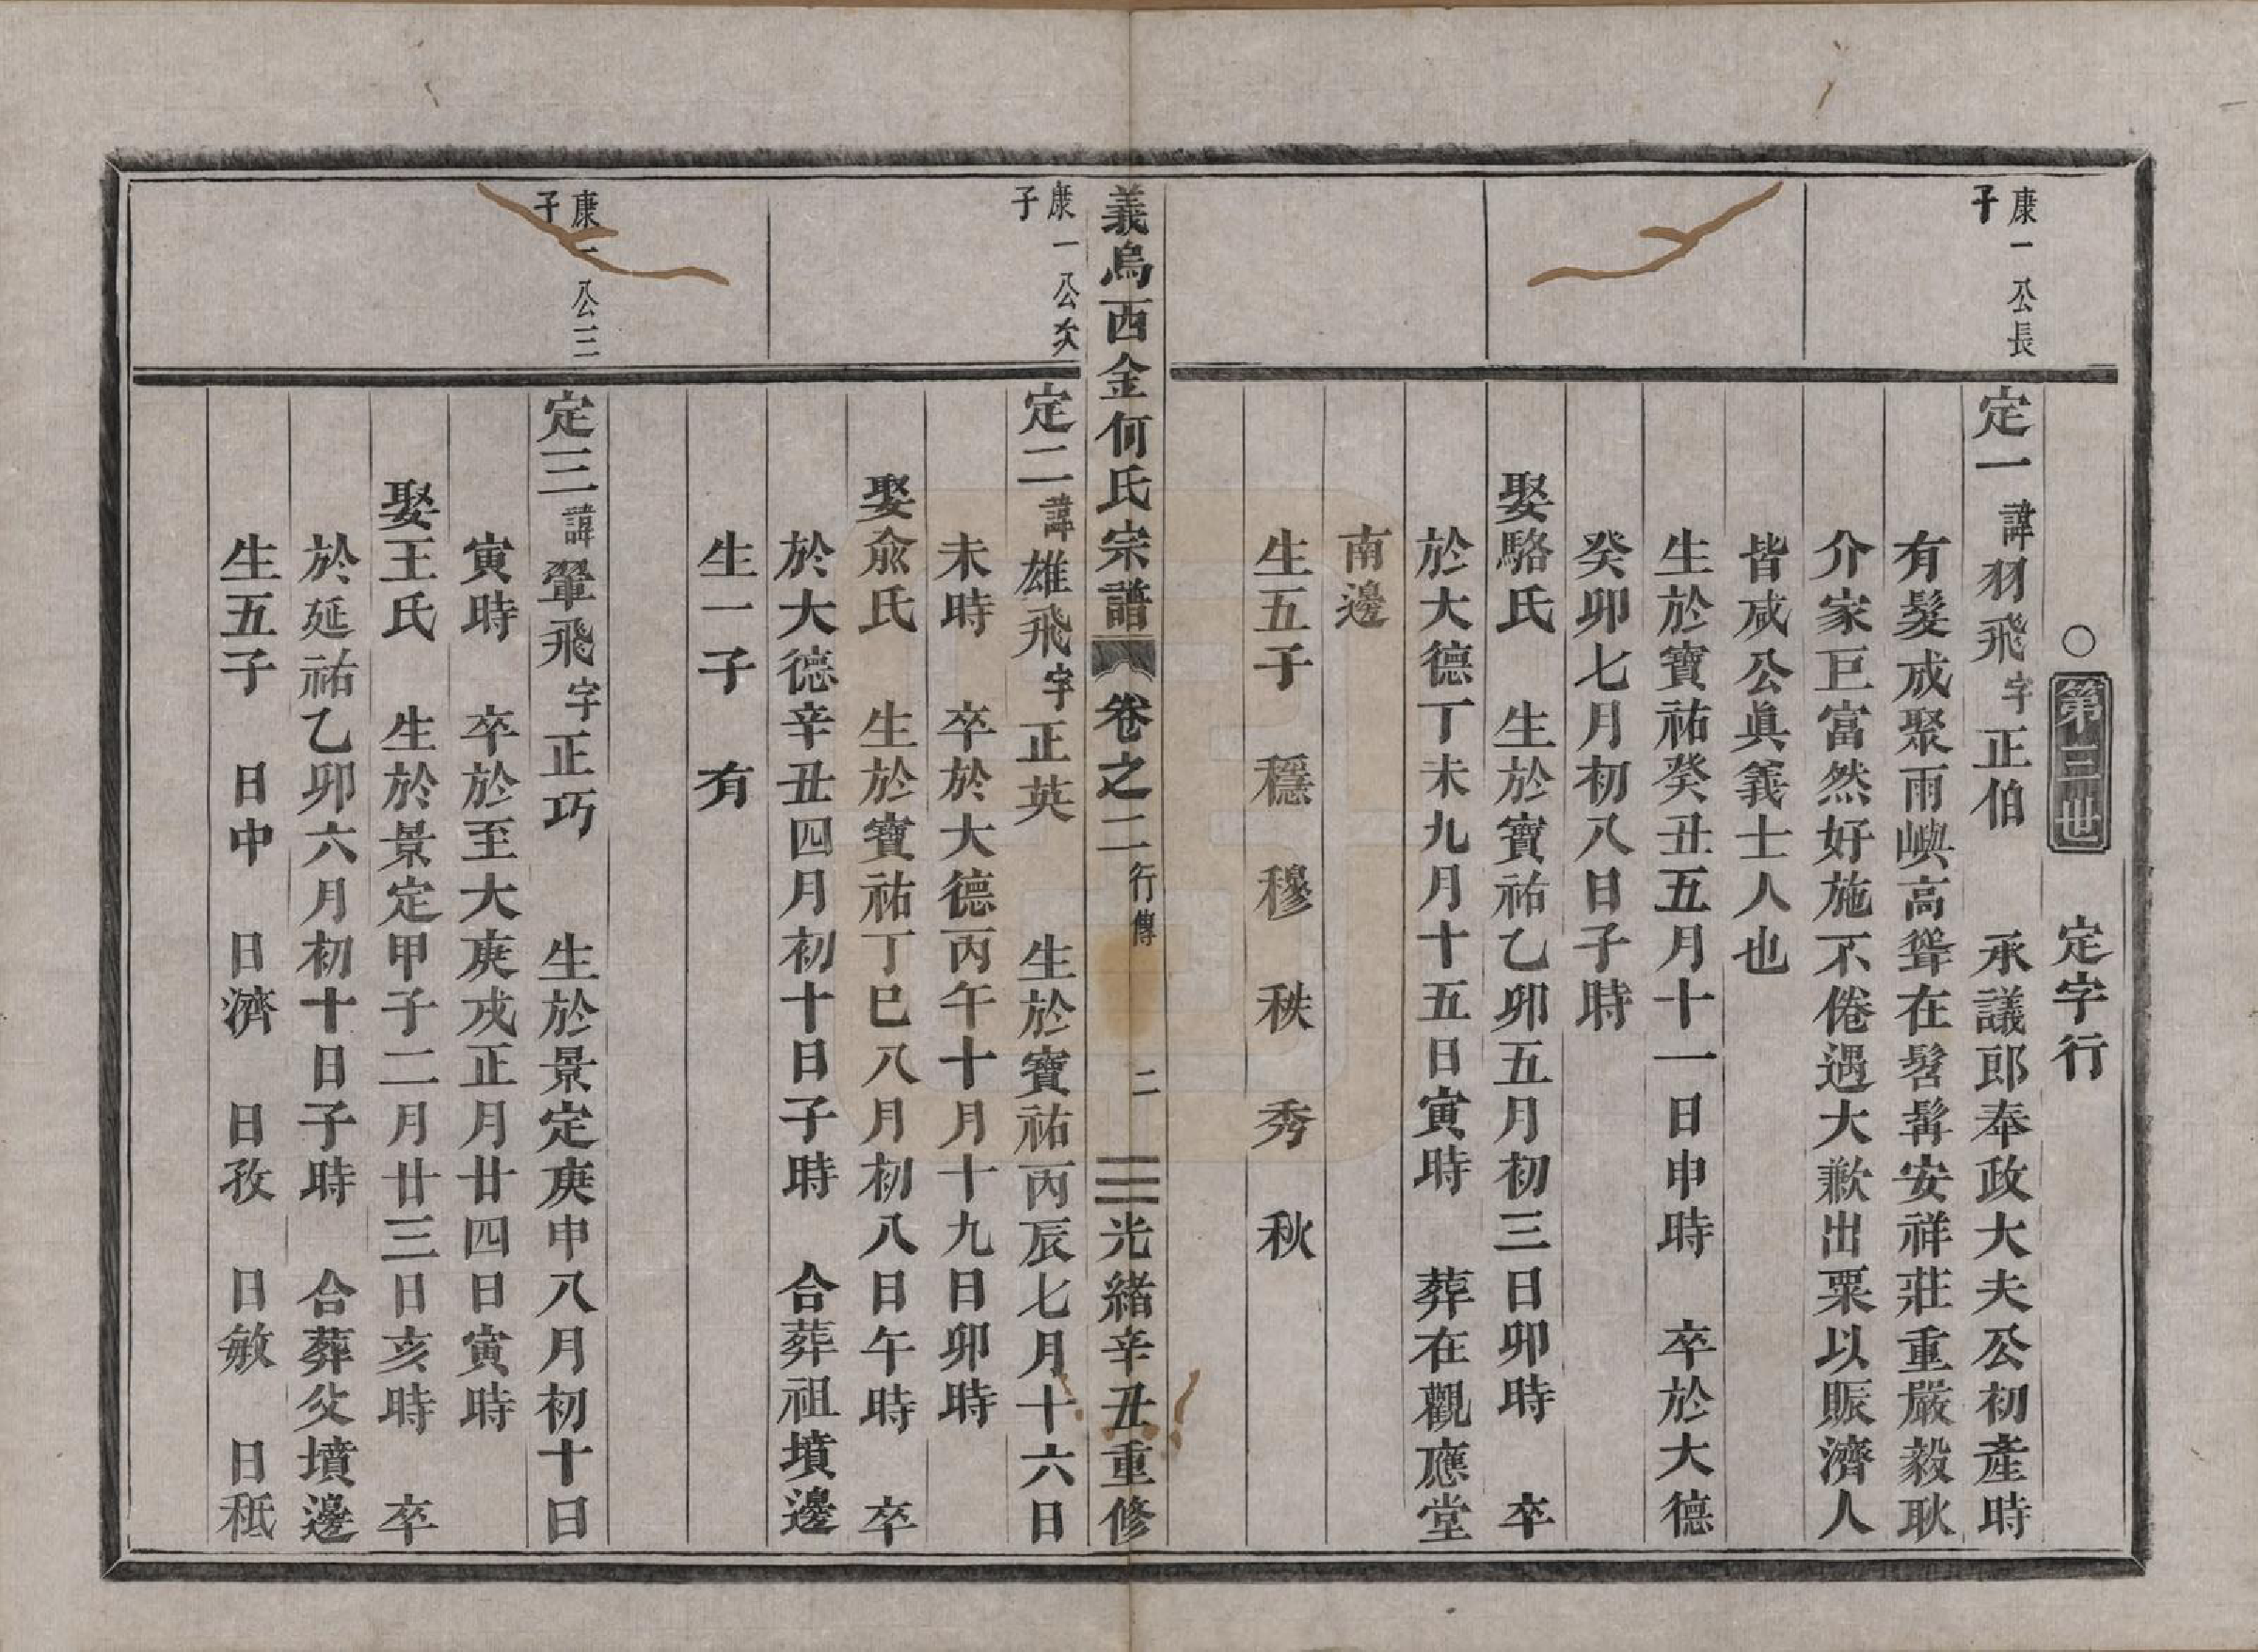 ○第三世　定字行
康一公長子
定一諱羽飛字正伯　承議郎奉政大夫公初產時
有髮成聚雨嶼高聳在髫髯安祥莊重嚴毅耿
介家巨富然好施不倦遇大歉出粟以賑濟人
皆咸公眞義士人也
生於寶祐癸丑五月十一日申時　卒於大德
癸卯七月初八日子時
娶駱氏　生於寶祐乙卯五月初三日卯時　卒
於大德丁未九月十五日寅時　葬在觀應堂
南邊
生五子　穩　穆　秩　秀　秋
義烏西金何氏宗譜　卷之二　行傳　二　光緒辛丑重修
康一公次子
定二諱雄飛字正英　生於寶祐丙辰七月十六日
未時　卒於大德丙午十月十九日卯時
娶兪氏　生於寶祐丁巳八月初八日午時　卒
於大德辛丑四月初十日子時　合葬祖墳邊
生一子　有
康一公三子
定三諱翬飛字正巧　生於景定庚申八月初十日
寅時　卒於至大庚戌正月廿四日寅時
娶王氏　生於景定甲子二月廿三日亥時　卒
於延祐乙卯六月初十日子時　合葬父墳邊
生五子　日中　日濟　日孜　日敏　日秪